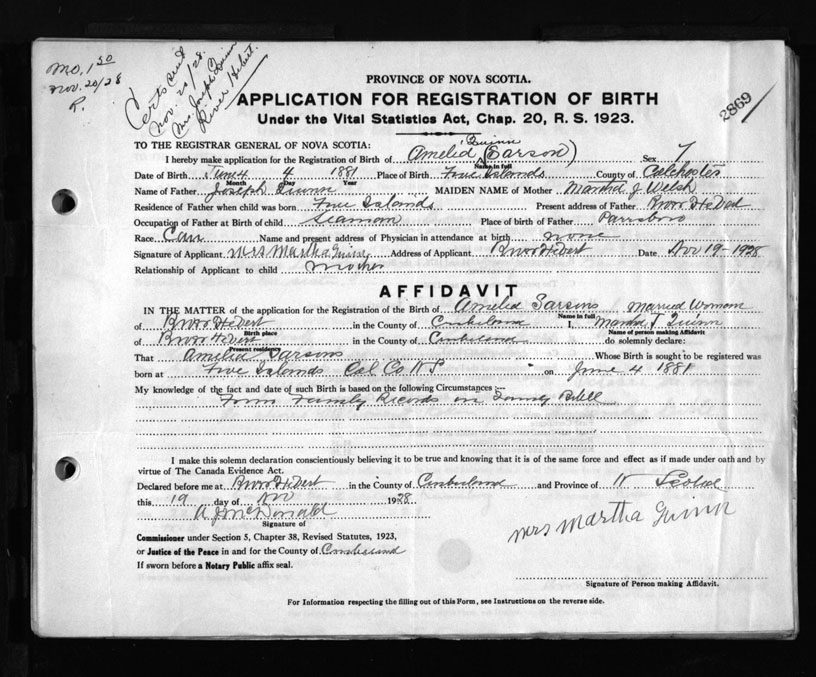 M.O. 1 50
Nov. 20/28
R.
Certs sent
Nov. 20/28.
Mrs Joseph Quinn
River Hebert.
2869
PROVINCE OF NOVA SCOTIA.
APPLICATION FOR REGISTRATION OF BIRTH
Under the Vital Statistics Act, Chap. 20, R. S. 1923.
TO THE REGISTRAR GENERAL OF NOVA SCOTIA:
Quinn
I hereby make application for the Registration of Birth of Amelid (Sarson) Sex 7
Name in full
Date of Birth June 4 1881 Place of Birth Five Islands County of Colchester
Month Day Year
Name of Father Joseph Quinn MAIDEN NAME of Mother Martha J Welsh
Residence of Father when child was born Five Islands Present address of Father River Hebert
Occupation of Father at Birth of child Seamon Place of birth of Father Parrsboro
Race Can Name and present address of Physician in attendance at birth none
Signature of Applicant Mrs Martha Quinn Address of Applicant River Hebert Date Nov 19-1928
Relationship of Applicant to child Mother
AFFIDAVIT
IN THE MATTER of the application for the Registration of the Birth of Amelid Sarsons Married Womam
Name in full
of River Hebert in the County of Cumberland I, Martha J Quinn
Birth place Name of person making Affidavit
of River Hebert in the County of Cumberland do solemnly declare:
Present residence
That Amelid Sarsons Whose Birth is sought to be registered was
born at Five Islands Col Co N S on June 4 1881
My knowledge of the fact and date of such Birth is based on the following Circumstances :—
From Family Records in Family Bible
I make this solemn declaration conscientiously believing it to be true and knowing that it is of the same force and effect as if made under oath and by
virtue of The Canada Evidence Act.
Declared before me at River Hebert in the County of Cumberland and Province of N Scotia
this 19 day of Nov 1928
A J McDonald
Signature of
Mrs Martha Quinn
Commissioner under Section 5, Chapter 38, Revised Statutes, 1923,
or Justice of the Peace in and for the County of Cumberland
If sworn before a Notary Public affix seal.
Signature of Person making Affidavit.
For Information respecting the filling out of this Form, see Instructions on the reverse side.